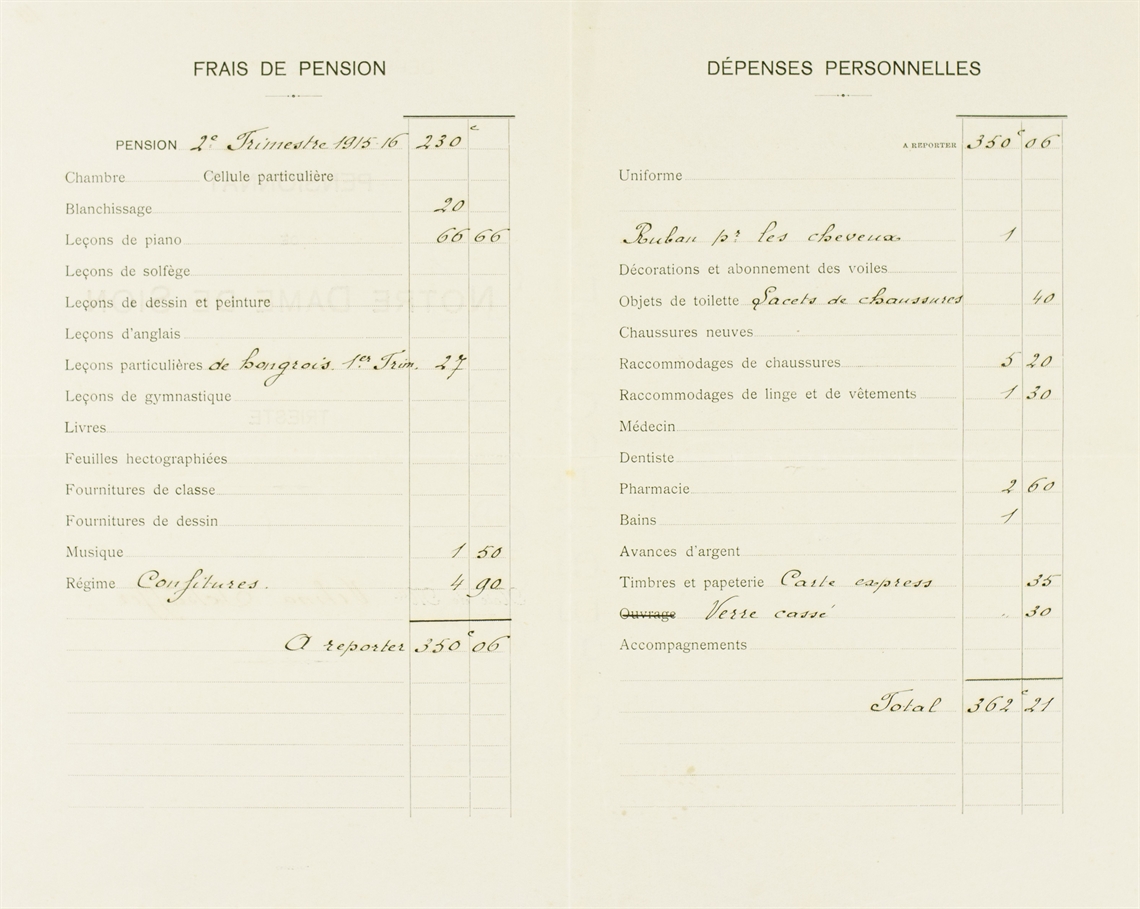 FRAIS DE PENSION
PENSION 2e Trimestre 1915-16 230 c
Chambre Cellule particulière
Blanchissage 20
Leçons de piano 66 66
Leçons de solfège
Leçons de dessin et peinture
Leçons d'anglais
Leçons particulières de hongrois. 1er Trim. 27
Leçons de gymnastique
Livres
Feuilles hectographiées
Fournitures de classe
Fournitures de dessin
Musique 1 50
Régime Confitures. 4 90
A reporter 350 c 06
DÉPENSES PERSONNELLES
A REPORTER 350 c 06
Uniforme
Ruban pr les cheveux 1
Décorations et abonnement des voiles
Objets de toilette Lacets de chaussures 40
Chaussures neuves
Raccommodages de chaussures 5 20
Raccommodages de linge et de vêtements 1 30
Médecin
Dentiste
Pharmacie 2 60
Bains 1
Avances d'argent
Timbres et papeterie Carte express 35
Ouvrage Verre cassé 30
Accompagnements
Total 362 c 21
PENSIONNAT
NOTRE DAME DE SION
TRIESTE